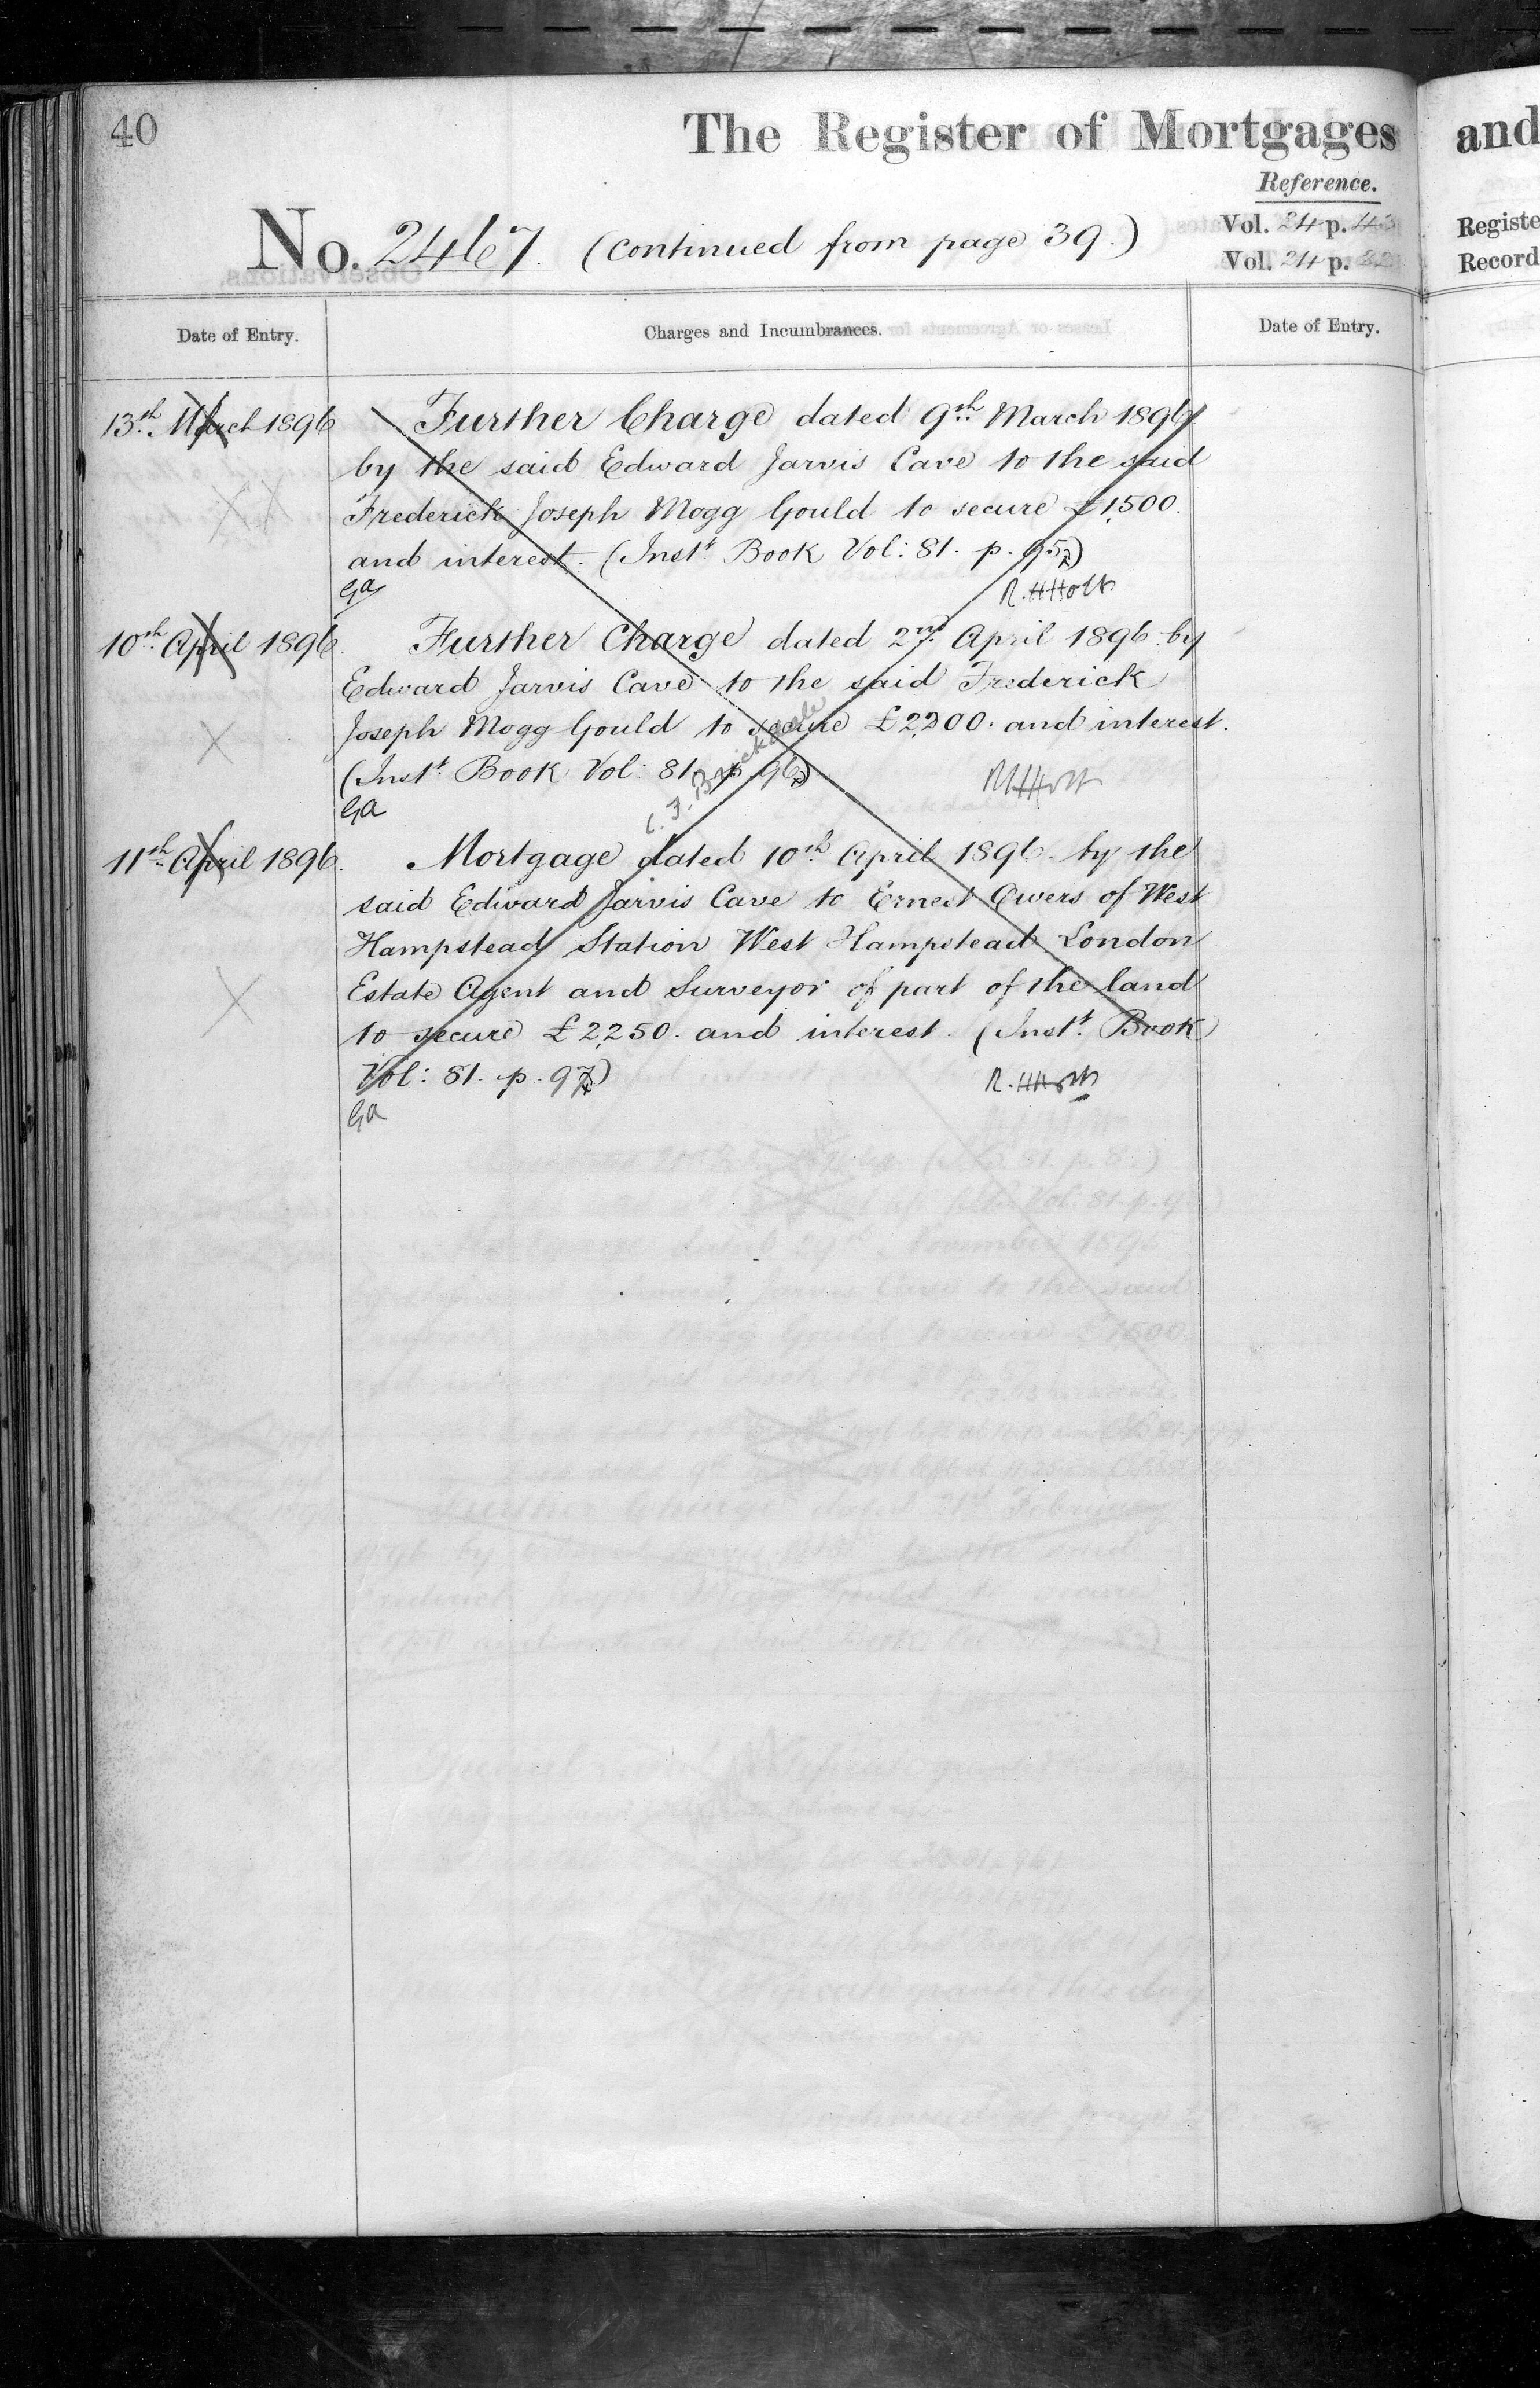 40
The Register of Mortgages
and
Reference.
No. 2467. (continued from page 39.)
Vol. 24 p. 43
Vol. 24 p. 22
Registe
Record
Date of Entry.
Charges and Incumbrances.
Date of Entry.
13th March 1896
Further Charge dated 9th March 1896
by the said Edward Jarvis Cave to the said
Frederick Joseph Mogg Gould to secure £1,500.
and interest. (Instt. Book Vol: 81. p. 95)
GA
R.HHolt
10th April 1896.
Further Charge dated 2nd April 1896 by
Edward Jarvis Cave to the said Frederick
Joseph Mogg Gould to secure £2,200. and interest.
(Instt. Book Vol: 81. p. 96)
GA
RHHolt
C. F. Brickdale
11th April 1896.
Mortgage dated 10th April 1896 by the
said Edward Jarvis Cave to Ernest Owers of West
Hampstead Station West Hampstead London
Estate Agent and Surveyor of part of the land
to secure £2,250. and interest. (Instt. Book
Vol: 81. p. 97)
GA
R.HHolt